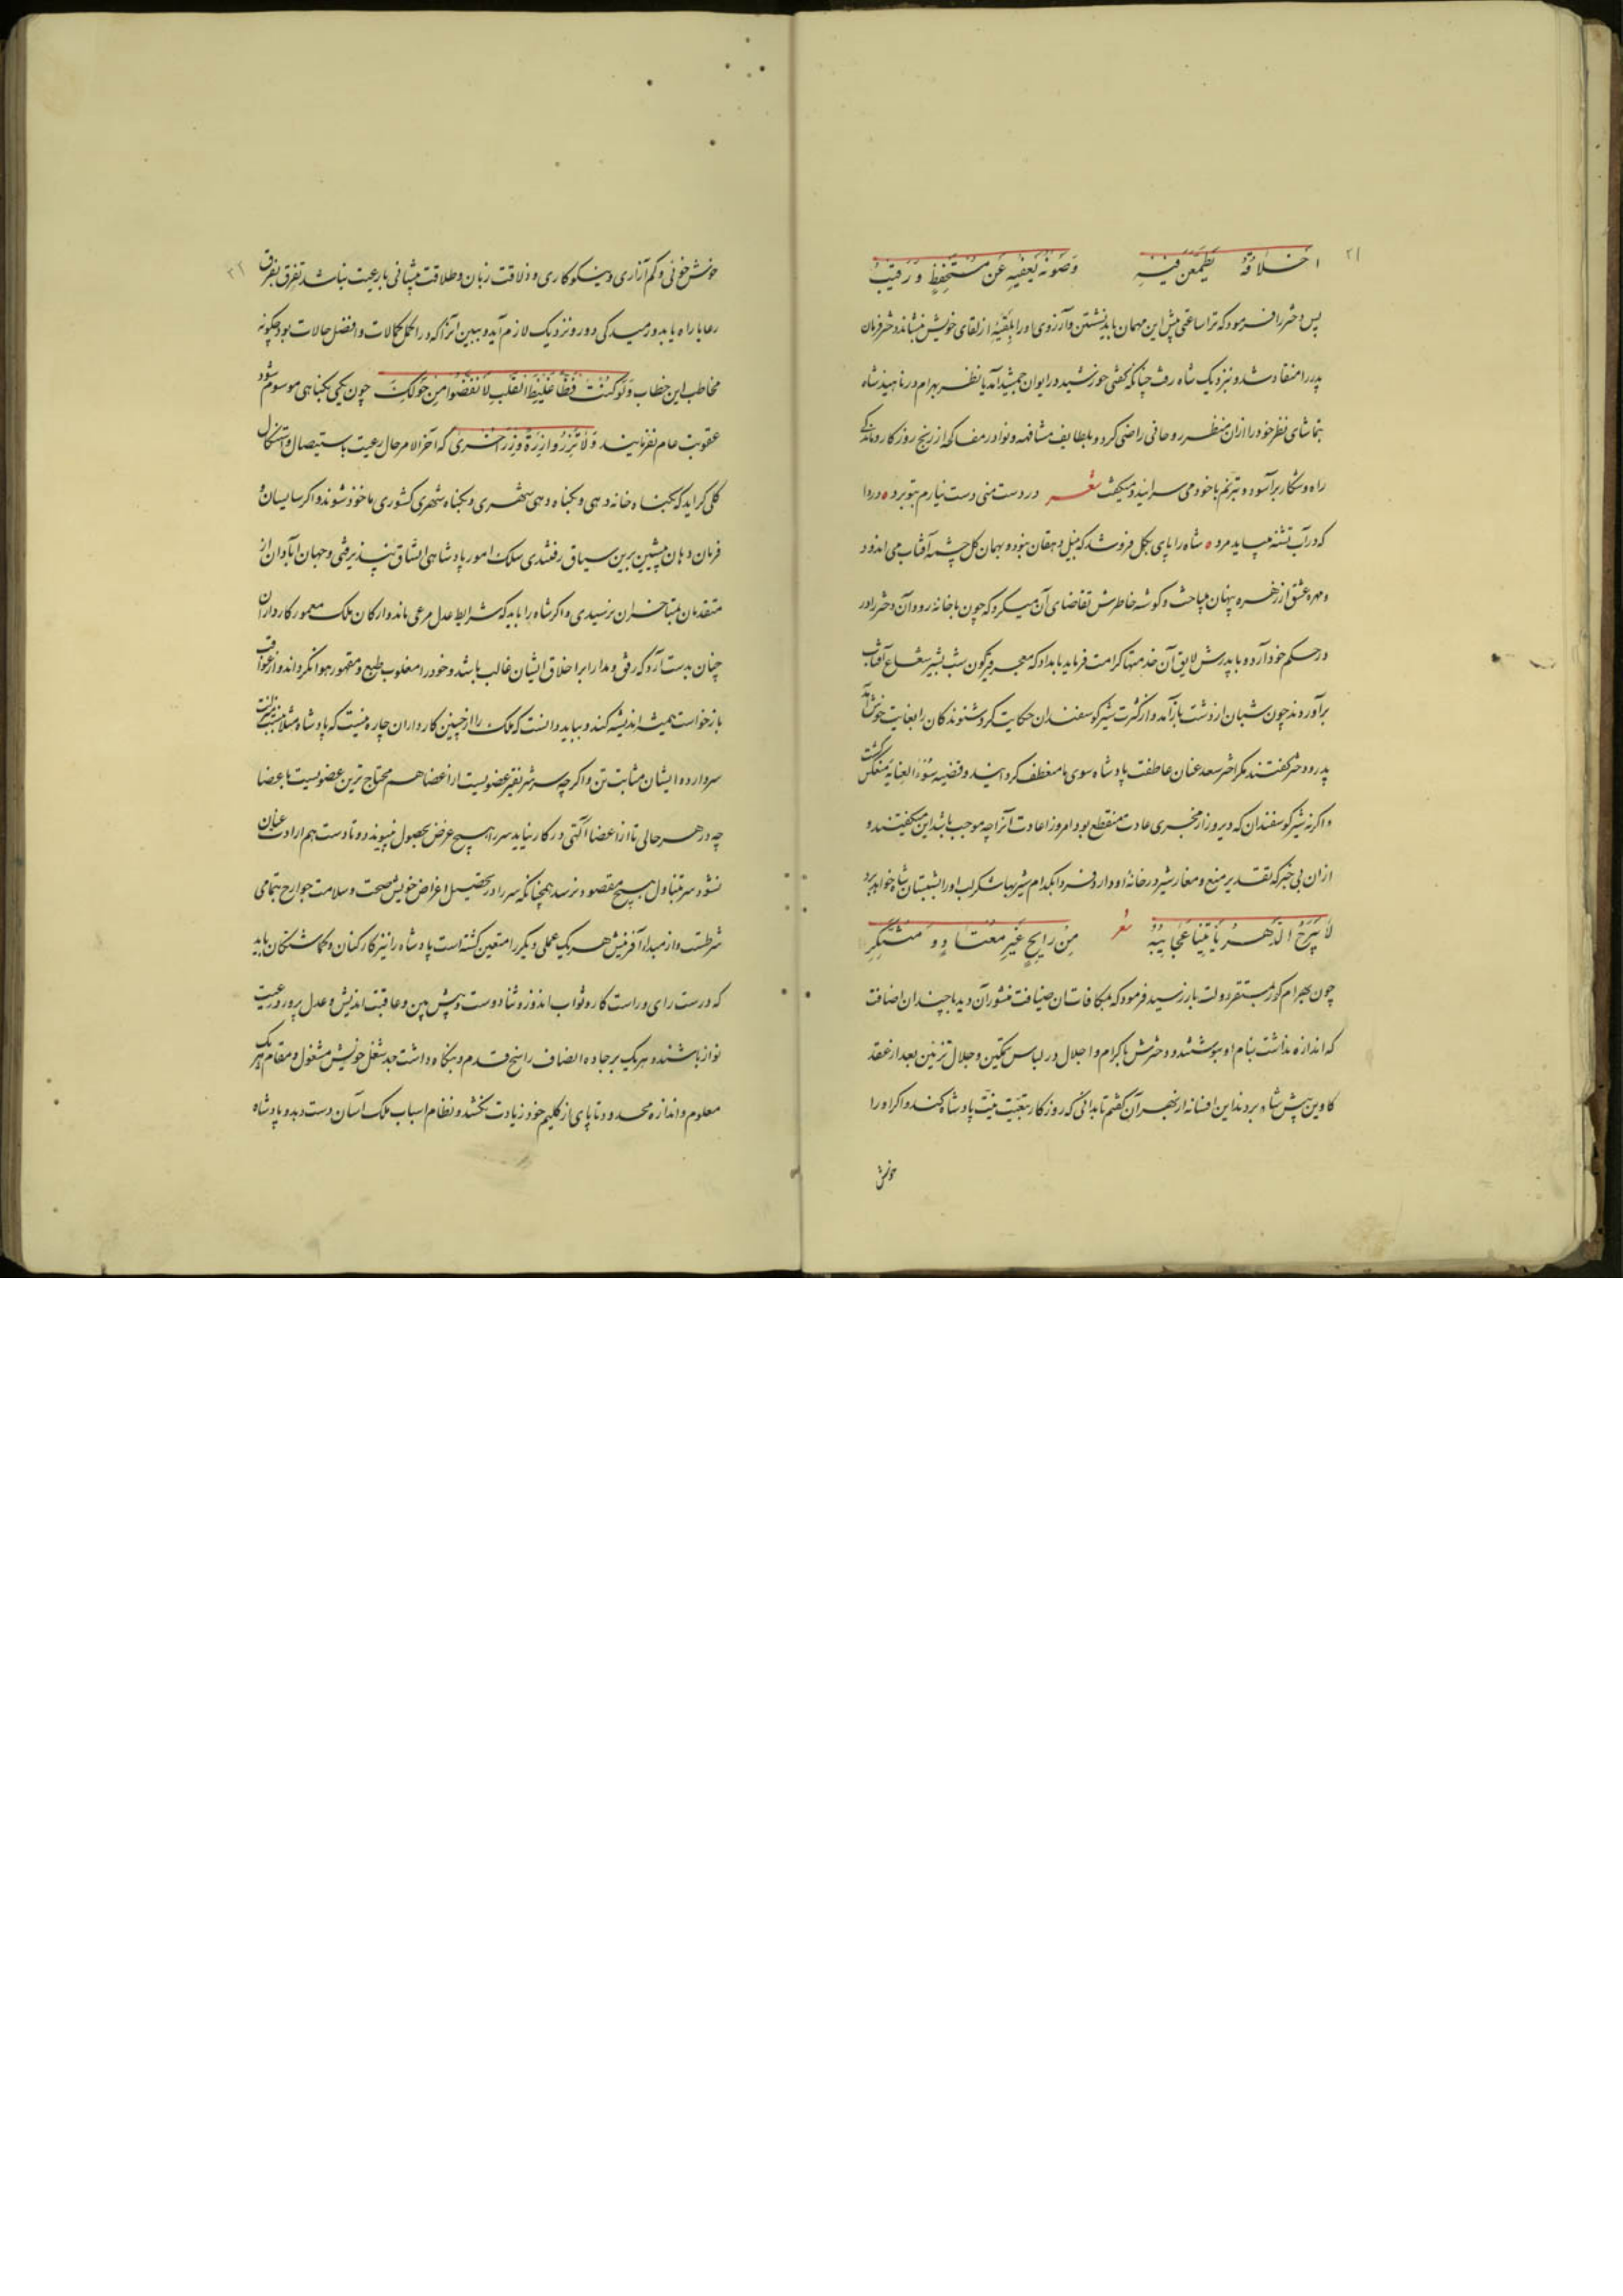 ۲۱
اخلاقه تطمعن فینه وصونه یعفیه عن مستحفظ و رقیب
پس دختر را فرمود که ترا ساعتی پیش این مهمان باید نشستن و آرزوی او را از لقای خویش بنشاند دختر فرمان
پدر را منقاد شد و نزدیک شاه رفت چنانکه گفتی خورشید در ایوان جمشید آمد یا نظر بهرام در ناهید شاه
بتماشای نظر خود را از آن منظر روحانی راضی کرد و بلطایف مشافهه و نوادر مفاکهه از رنج روزگار و ماندگی
راه و شکار برآسود و بترنم با خود می سرایید و میگفت شعر در دست منی دست نیارم بتو برد ه دردا
که در آب تشنه میباید مرد ه شاه را پای بگل فرو شد که بیل دهقان نبود و بهمان گل چشمه آفتاب می اندود
و مهره عشق از زهره پنهان میباخت و گوشه خاطرش تقاضای آن میکرد که چون باخانه رود آن دختر را در
در حکم خود آرد و با پدرش لایق آن خدمتها کرامت فرماید بامداد که معجر قیرگون شب بشیر شعاع آفتاب
برآوردند چون شبان از دشت بازآمد و از کثرت شیر گوسفندان حکایت کرد شنوندگان را بغایت خوش آمد
پدر و دختر گفتند مگر اختر سعد عنان عاطفت پادشاه سوی ما منعطف گردانید و قضیه سوء العنایه منعکس گشت
و اگرنه شیر گوسفندان که دیروز از مجری عادت منقطع بود امروز اعادت آنرا چه موجب باشد این میگفتند و
از آن بی خبر که تقدیر منبع و مغار شیر در خانه او دارد و فردا بکدام شیربها شکرلب او را بشبستان شاه خواهد برد
لا یبرح الدهر یاتینا عجایبه شعر من رایح غیر معتاد و مبتکر
چون بهرام گور بمستقر دولت باز رسید فرمود که بمکافات آن ضیافت منشور آن دیه با چندان اضافت
که اندازه نداشت بنام او بنوشتند و دخترش با کرام و اجلال در لباس تمکین و جلال تزیین بعد از عقد
کاوین پیش شاه بردند این افسانه از بهر آن گفتم تا بدانی که روزگار تبعیت نیت پادشاه کند و اگر او را
خوش
۲۲
خوش خوئی و کم آزاری و نیکوکاری و ذلاقت زبان و طلاقت پیشانی با رعیت نباشد تفرق بفرق
رعایا راه یابد و رمیدگی دور و نزدیک لازم آید و ببین آنرا که در اکمل کمالات و افضل حالات بود چگونه
مخاطب این خطاب وَلَوْ کُنْتَ فَظّاً غَلِیظَ الْقَلْبِ لَانْفَضُّوا مِنْ حَوْلِکَ چون یکی بگناهی موسوم شود
عقوبت عام نفرمایند وَلَا تَزِرُ وَازِرَةٌ وِزْرَ أُخْرَى که آخرالامر حال رعیت باستیصال و استیکال
کلی گراید که بگناه خانه دهی و بگناه دهی شهری و بگناه شهری کشوری ماخوذ شوند و اگر سایسان و
فرمان دهان پیشین برین سیاق رفتندی سلک امور پادشاهی اتساق نپذیرفتی و جهان آبادان از
متقدمان بمتاخران نرسیدی و اگر شاه را باید که شرایط عدل مرعی ماند و ارکان ملک معمور کارداران
چنان بدست آرد که رفق و مدارا بر اخلاق ایشان غالب باشد و خود را مغلوب طبع و مقهور هوا نگرداند و از عواقب
بازخواست همیشه اندیشه کند و بباید دانست که ملک را از چنین کارداران چاره نیست که پادشاه مثلا بمنزلت
سردارد و ایشان بمثابت تن و اگرچه سر شریفتر عضویست از اعضا هم محتاج ترین عضویست باعضا
چه در هر حالی تا از اعضا آلتی در کار نیاید سر را هیچ غرض بحصول نپیوندد و تا دست هم ارادت عنان
نشود سر بتناول هیچ مقصود نرسد همچنانکه سر را در تحصیل اغراض خویش صحت و سلامت جوارح بتمامی
شرطست و از مبداء آفرینش هر یک عملی دیگر را متعین گشته است پادشاه را نیز کارکنان و گماشتگان باید
که درست رای و راست کار و ثواب اندوز و ثنادوست و پیش بین و عاقبت اندیش و عدل پرور و رعیت
نواز باشند و هر یک بر جاده انصاف راسخ قدم و نگاه داشت حد شغل خویش مشغول و مقام هر یک
معلوم و اندازه محدود تا پای از گلیم خود زیادت نکشد و نظام اسباب ملک آسان دست دهد و پادشاه